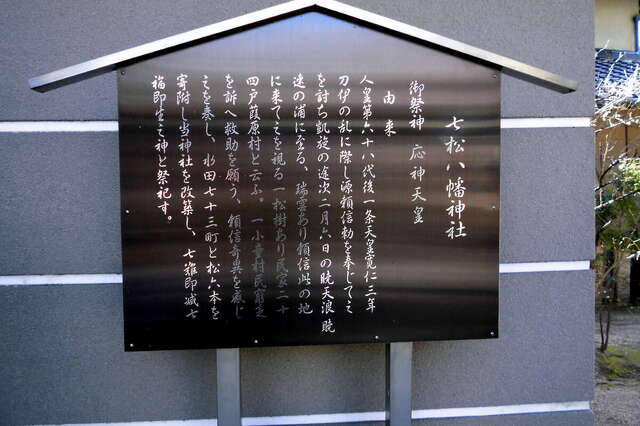 七松八幡神社
御祭神 応神天皇
由来
人皇第六十八代後一条天皇寛仁三年
刀伊の乱に際し源頼信勅を奉じてこ
を討ち凱旋の途次二月六日の暁天浪暁
速の浦に至る、瑞雲あり頼信此の地
に来てこを視る一松樹あり民家二十
四戸葭原村と云ふ。一小童村民窮乏
を訴へ救助を願う、頼信奇異を感じ
こを奏し、水田七十三町と松六本を
寄附し当神社を改築し、七難即滅七
福即生之神と祭祀す。